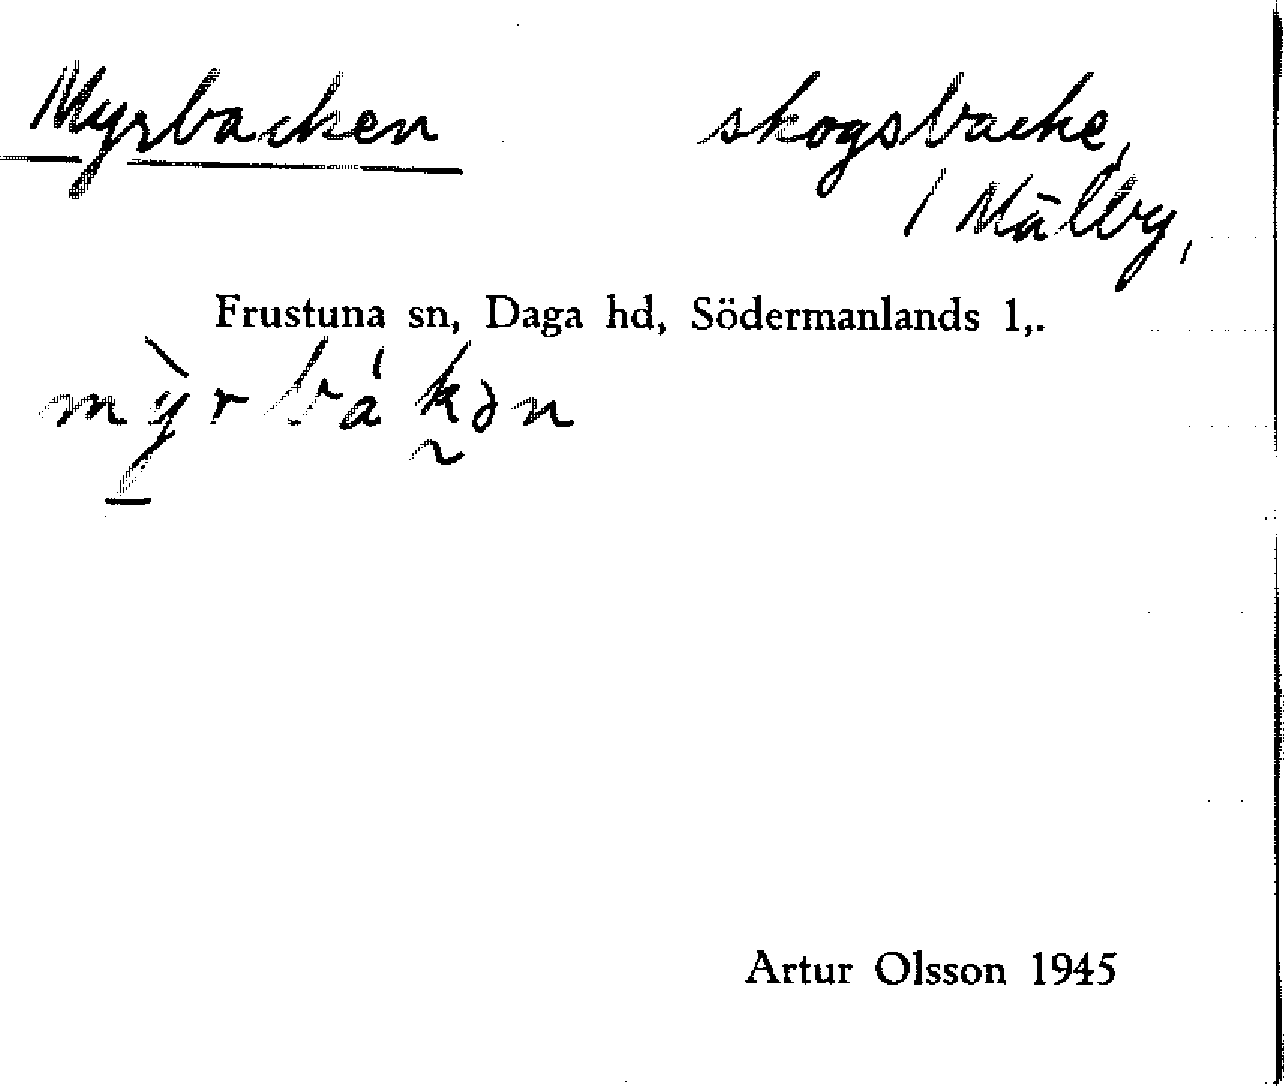 Myrbacken skogsbacke,
/ Mälby,
Frustuna sn, Daga hd, Södermanlands l,.
mỳrbákən
Artur Olsson 1945